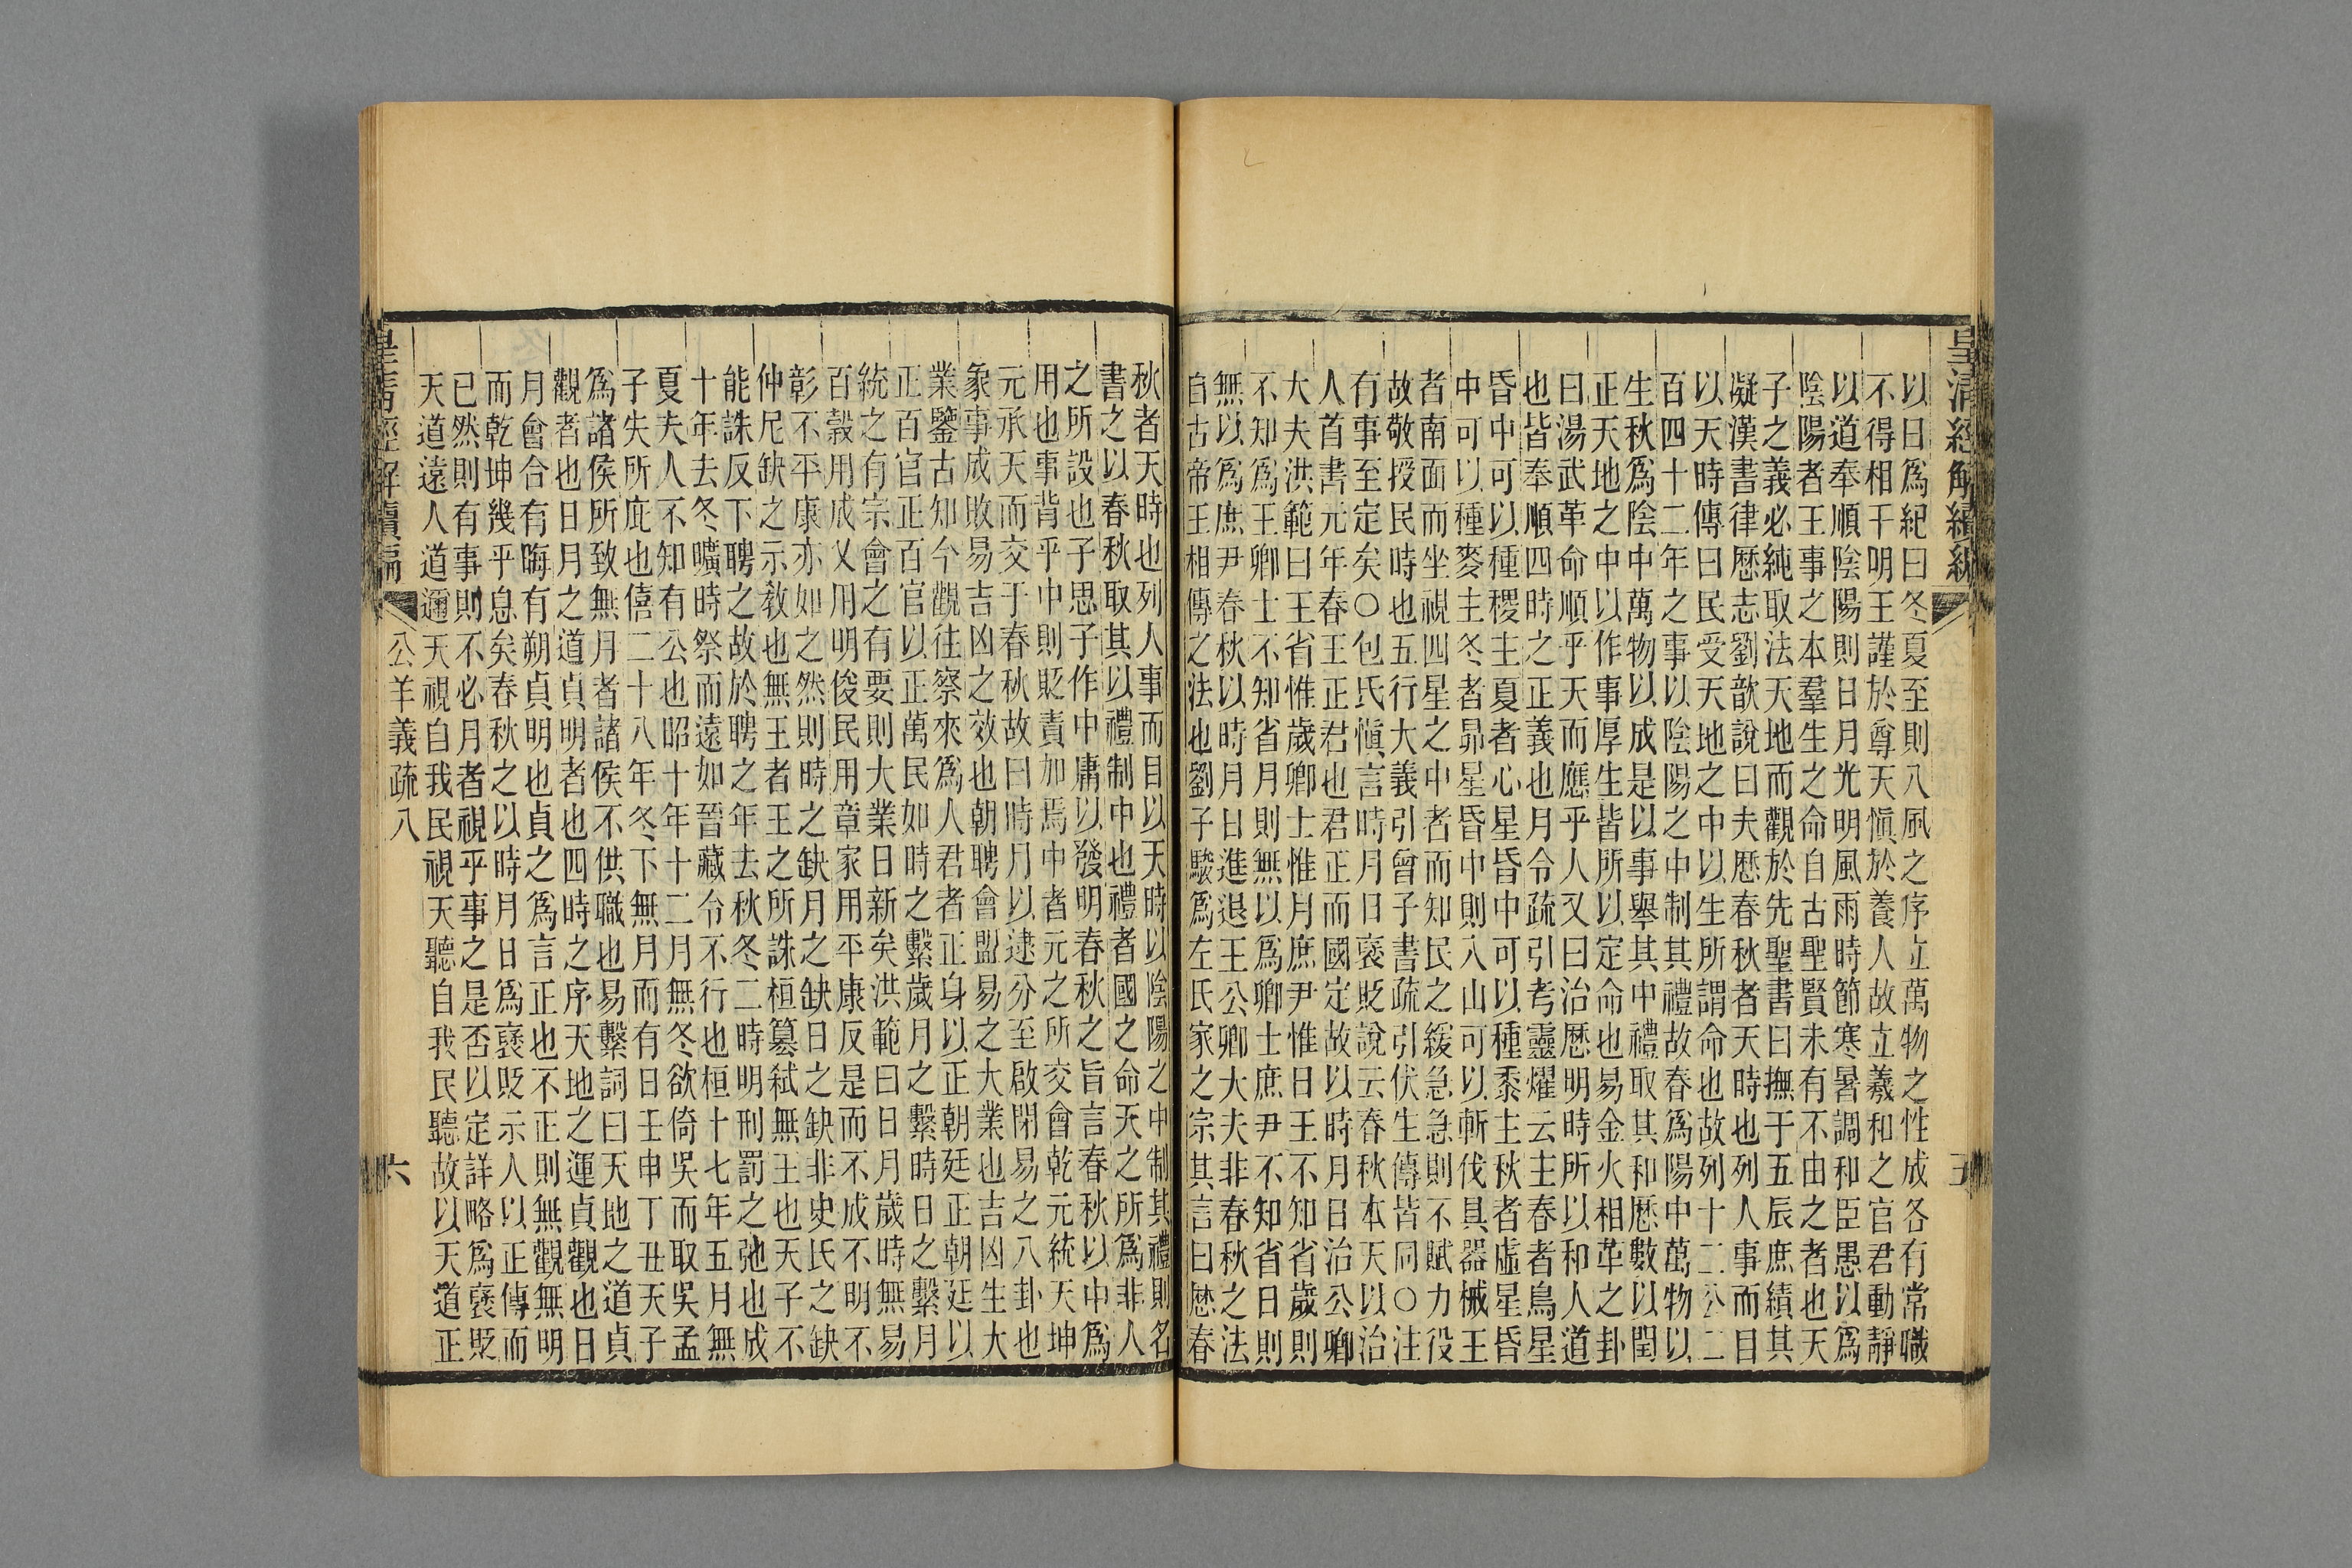 皇清經解續編
五
以日爲紀曰冬夏至則八風之序立萬物之性成各有常職
不得相干明王謹於尊天愼於養人故立羲和之官君動靜
以道奉順陰陽則日月光明風雨時節寒暑調和臣愚以爲
陰陽者王事之本羣生之命自古聖賢未有不由之者也天
子之義必純取法天地而觀於先聖書曰撫于五辰庶績其
凝漢書律厯志劉歆說曰夫厯春秋者天時也列人事而目
以天時傳曰民受天地之中以生所謂命也故列十二公二
百四十二年之事以陰陽之中制其禮故春爲陽中萬物以
生秋爲陰中萬物以成是以事舉其中禮取其和厯數以閏
正天地之中以作事厚生皆所以定命也易金火相革之卦
曰湯武革命順乎天而應乎人又曰治厯明時所以和人道
也皆奉順四時之正義也月令疏引考靈燿云主春者鳥星
昏中可以種稷主夏者心星昏中可以種黍主秋者虛星昏
中可以種麥主冬者昴星昏中則入山可以斬伐具器械王
者南面而坐視四星之中者而知民之緩急急則不賦力役
故敬授民時也五行大義引曾子書疏引伏生傳皆同○注
有事至定矣○包氏愼言時月日襃貶說云春秋本天以治
人首書元年春王正君也君正而國定故以時月日治公卿
大夫洪範曰王省惟歲卿士惟月庶尹惟日王不知省歲則
不知爲王卿士不知省月則無以爲卿士庶尹不知省日則
無以爲庶尹春秋以時月日進退王公卿大夫非春秋之法
自古帝王相傳之法也劉子駿爲左氏家之宗其言曰厯春
秋者天時也列人事而目以天時以陰陽之中制其禮則名
書之以春秋取其以禮制中也禮者國之命天之所爲非人
之所設也子思子作中庸以發明春秋之旨言春秋以中爲
用也事背乎中則貶責加焉中者元之所交會乾元統天坤
元承天而交于春秋故曰時月以逮分至啟閉易之八卦也
象事成敗易吉凶之效也朝聘會盟易之大業也吉凶生大
業鑒古知今觀往察來爲人君者正身以正朝廷正朝廷以
正百官正百官以正萬民如時之繫歲月之繫時日之繫月
統之有宗會之有要則大業日新矣洪範曰日月歲時無易
百穀用成乂用明俊民用章家用平康反是而不成不明不
彰不平康亦如之然則時之缺月之缺日之缺非史氏之缺
仲尼缺之示敎也無王者王之所誅桓篡弑無王也天子不
能誅反下聘之故於聘之年去秋冬二時明刑罰之弛也成
十年去冬曠時祭而遠如晉藏令不行也桓十七年五月無
夏夫人不知有公也昭十年十二月無冬欲倚吳而取吳孟
子失所庇也僖二十八年冬下無月而有日壬申丁丑天子
爲諸侯所致無月者諸侯不供職也易繫詞曰天地之道貞
觀者也日月之道貞明者也四時之序天地之運貞觀也日
月會合有晦有朔貞明也貞之爲言正也不正則無觀無明
而乾坤幾乎息矣春秋之以時月日爲襃貶示人以正傳而
已然則有事則不必月者視乎事之是否以定詳略爲襃貶
天道遠人道邇天視自我民視天聽自我民聽故以天道正
皇清經解續編
公羊義疏八
六